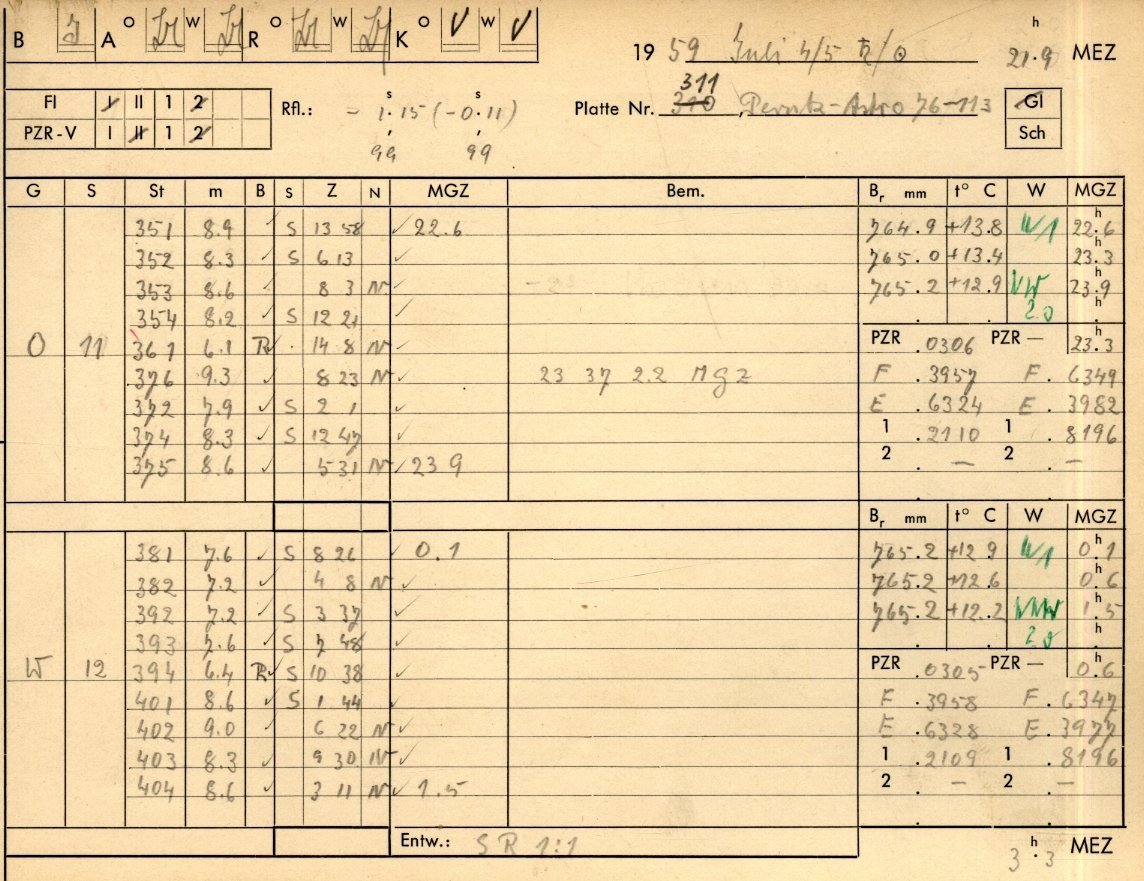 B A O W R O W K O V W V
h
19 59 Juli 4/5 ♄/☉ 21.9 MEZ
FI I II 1 2
PZR-V I II 1 2
Rfl.: - 1.15 (-0.11)
s s
99 99
311
Platte Nr. 310, Perutz-Astro 76-113
Gl
Sch
G S St m B S Z N MGZ Bem. Br mm t° C W MGZ
351 8.9 ✓ S 13 58 ✓ 22.6 764.9 +13.8 W1 22.6
352 8.3 ✓ S 6 13 ✓ 765.0 +13.4 23.3
353 8.6 ✓ 8 3 N ✓ 765.2 +12.9 23.9
354 8.2 ✓ S 12 21 ✓ 20
O 11 361 6.1 R 14 8 N ✓ PZR .0306 PZR — 23.3
376 9.3 ✓ 8 23 N ✓ 23 37 2.2 MGZ F .3957 F. 6349
372 7.9 ✓ S 2 1 ✓ E .6324 E. 3982
374 8.3 ✓ S 12 47 ✓ 1 .2110 1 .8196
375 8.6 ✓ 5 31 N ✓ 23 9 2 . — 2 . —
Br mm t° C W MGZ
381 7.6 ✓ S 8 26 ✓ 0.1 765.2 +12.9 W1 0.1
382 7.2 ✓ 4 8 N ✓ 765.2 +12.6 0.6
392 7.2 ✓ S 3 37 ✓ 765.2 +12.2 WNW 1.5
393 7.6 ✓ S 7 48 ✓ 20
W 12 394 6.4 R ✓ S 10 38 ✓ PZR .0305 PZR — 0.6
401 8.6 ✓ S 1 44 ✓ F .3958 F. 6347
402 9.0 ✓ 6 22 N ✓ E .6328 E. 3977
403 8.3 ✓ 9 30 N ✓ 1 .2109 1 .8196
404 8.6 ✓ 3 11 N ✓ 1.5 2 . — 2 . —
Entw.: SR 1:1
h
3.3 MEZ